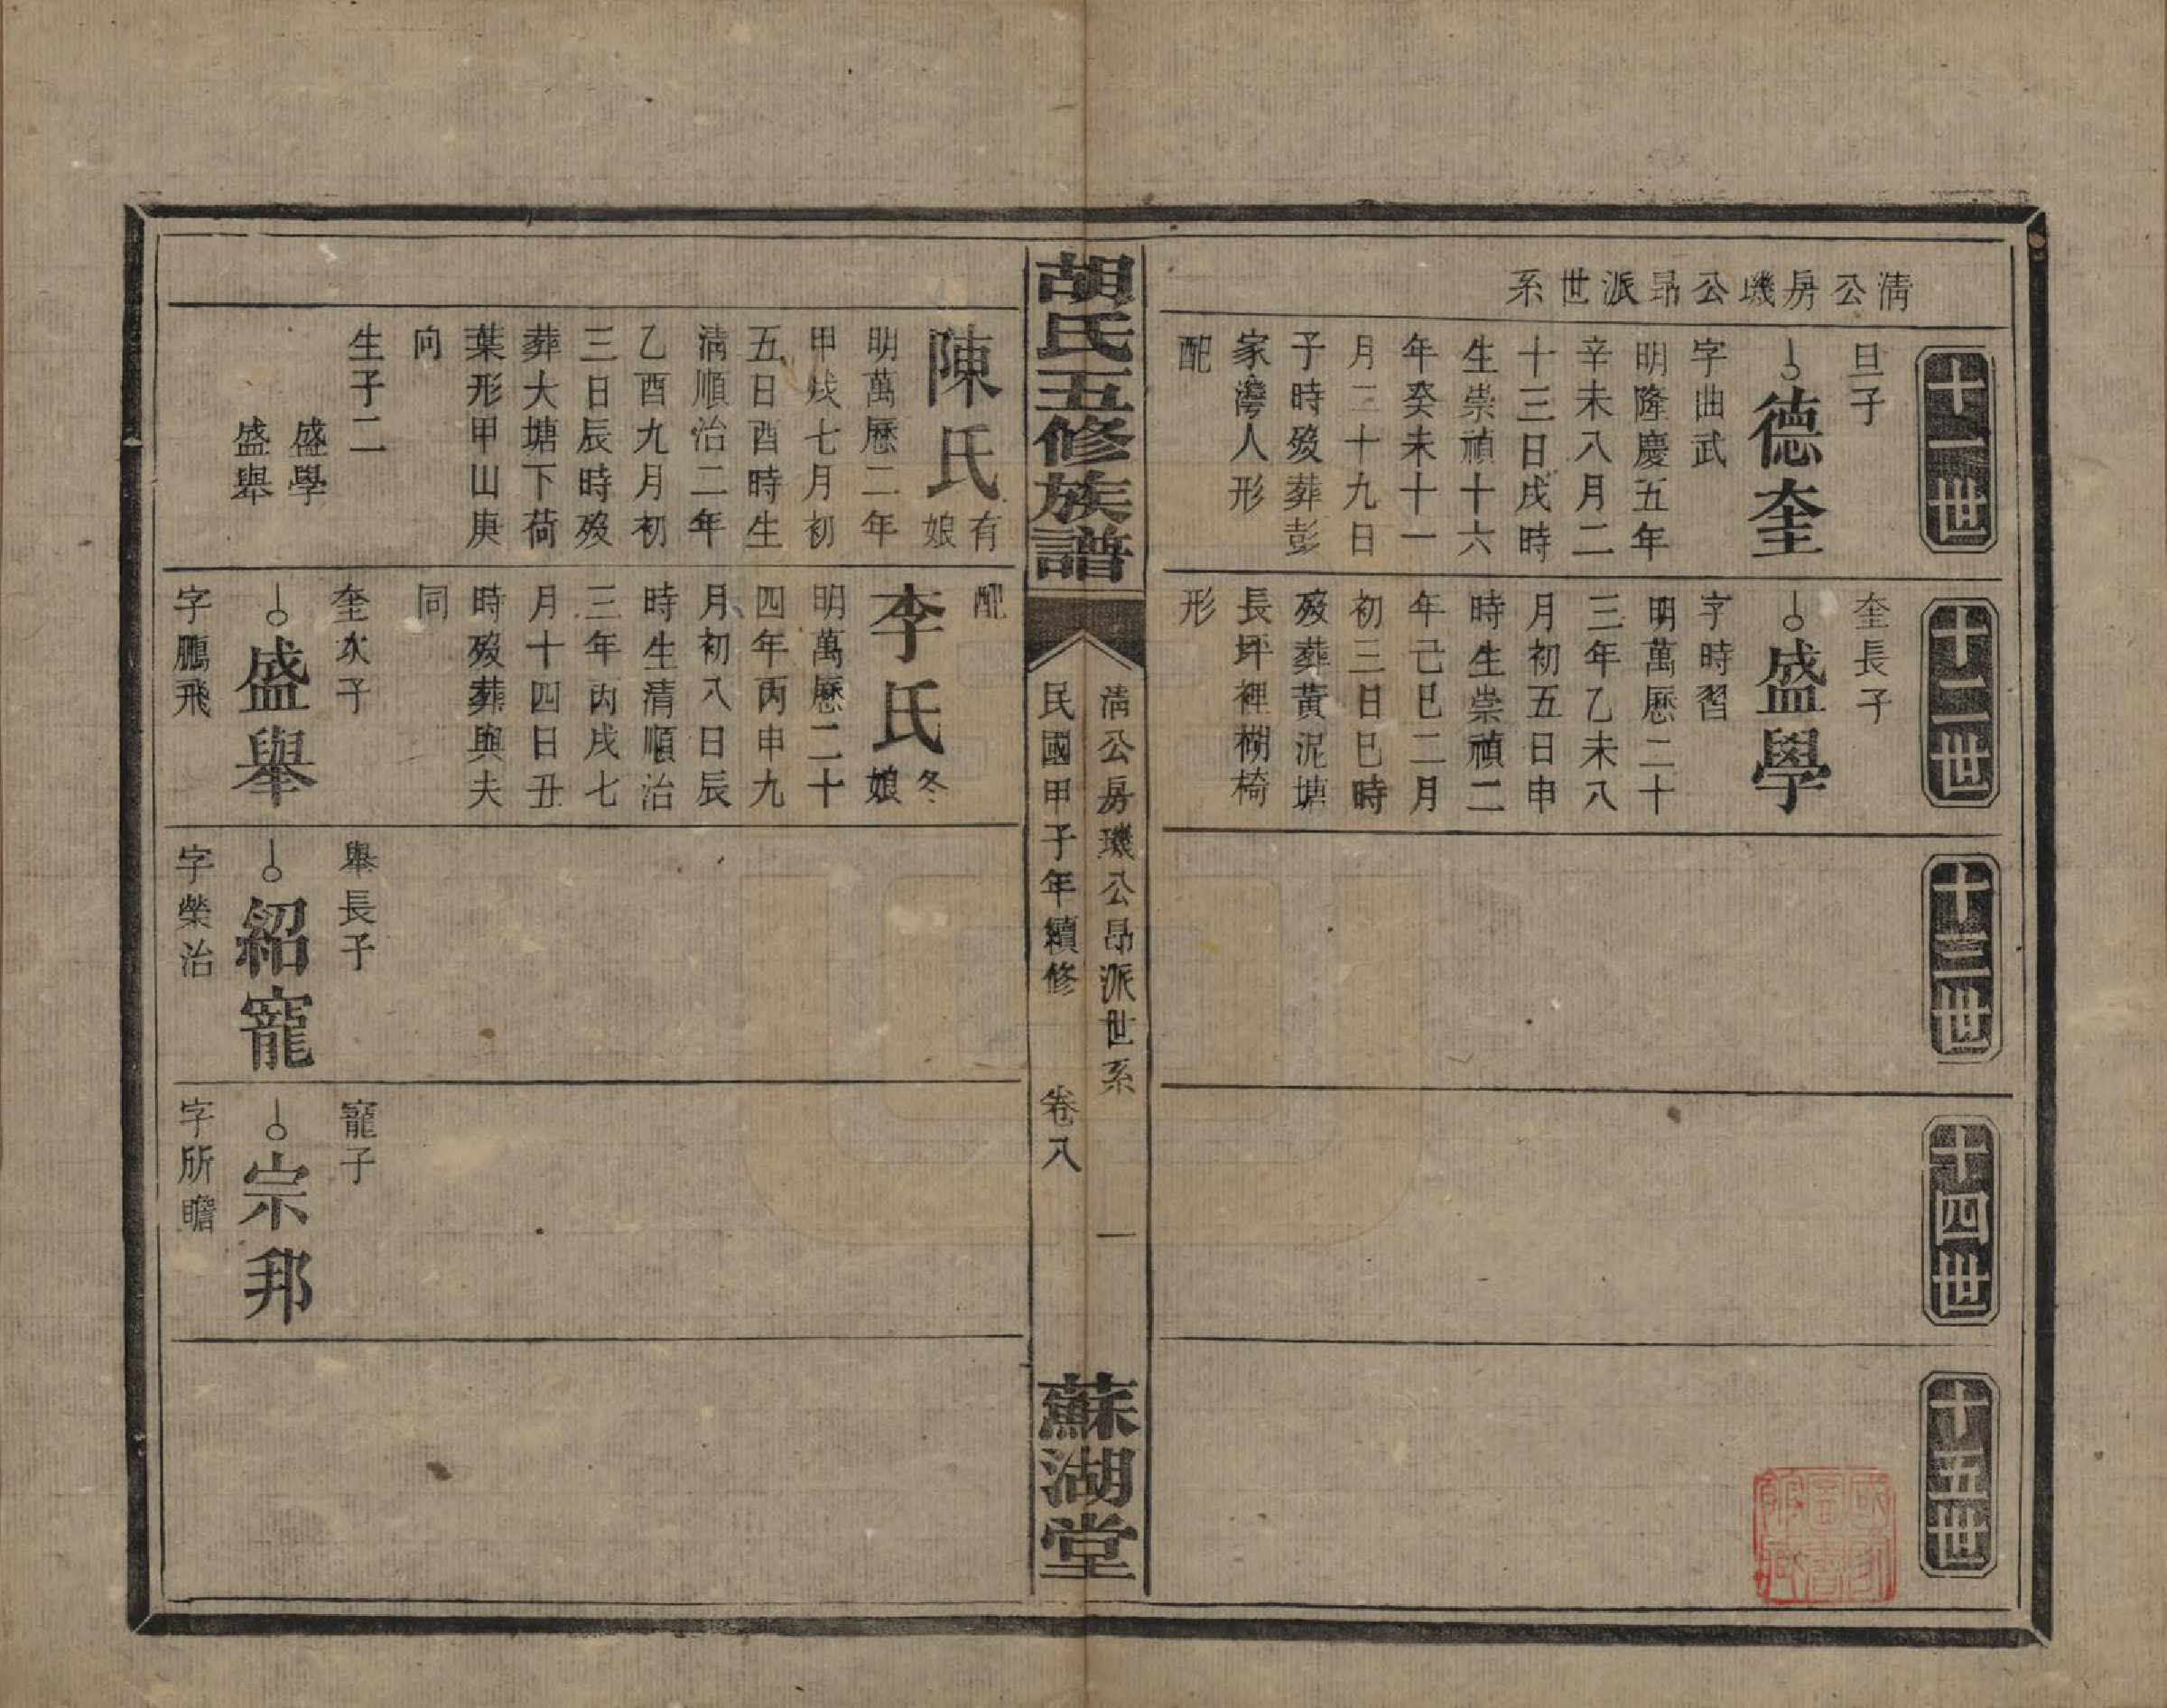 清公房璣公昻派世系
十一世
旦子
德奎
字曲武
明隆慶五年
辛未八月二
十三日戌時
生崇禎十六
年癸未十一
月二十九日
子時歿葬彭
家灣人形
配
十二世
奎長子
盛學
字時習
明萬歷二十
三年乙未八
月初五日申
時生崇禎二
年己巳二月
初三日巳時
歿葬黃泥塘
長坪裡棚椅
形
十三世
十四世
十五世
胡氏五修族譜
清公房璣公昻派世系
民國甲子年續修
卷八
一
蘇湖堂
陳氏有娘
明萬歷二年
甲戌七月初
五日酉時生
清順治二年
乙酉九月初
三日辰時歿
葬大塘下荷
葉形甲山庚
向
生子二
盛學
盛舉
配
李氏冬娘
明萬歷二十
四年丙申九
月初八日辰
時生清順治
三年丙戌七
月十四日丑
時歿葬與夫
同
奎次子
盛舉
字鵬飛
舉長子
紹寵
字榮治
寵子
宗邦
字所瞻